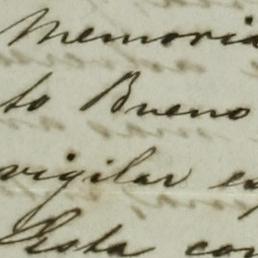 Memoria
to Bueno
vigilar
Esta con